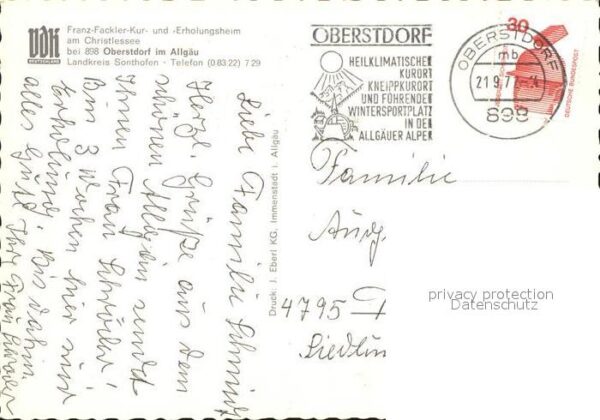 vdk
DEUTSCHLANDS
Franz-Fackler-Kur- und -Erholungsheim
am Christlessee
bei 898 Oberstdorf im Allgäu
Landkreis Sonthofen - Telefon (0 83 22) 7 29
Liebe Familie Schmidt
Herzl. Grüße aus dem
schönen Allgäu sendet
Ihnen Frau
Bin 3 Wochen hier zur
Erholung. Bis dahin
alles Gute Ihre Frau
Druck: J. Eberl KG. Immenstadt i. Allgäu
OBERSTDORF
HEILKLIMATISCHER
KURORT
KNEIPPKURORT
UND FÜHRENDER
WINTERSPORTPLATZ
IN DEN
ALLGÄUER ALPEN
OBERSTDORF
mb
21.9.7
898
30
DEUTSCHE BUNDESPOST
Familie
4795
Siedlun
privacy protection
Datenschutz